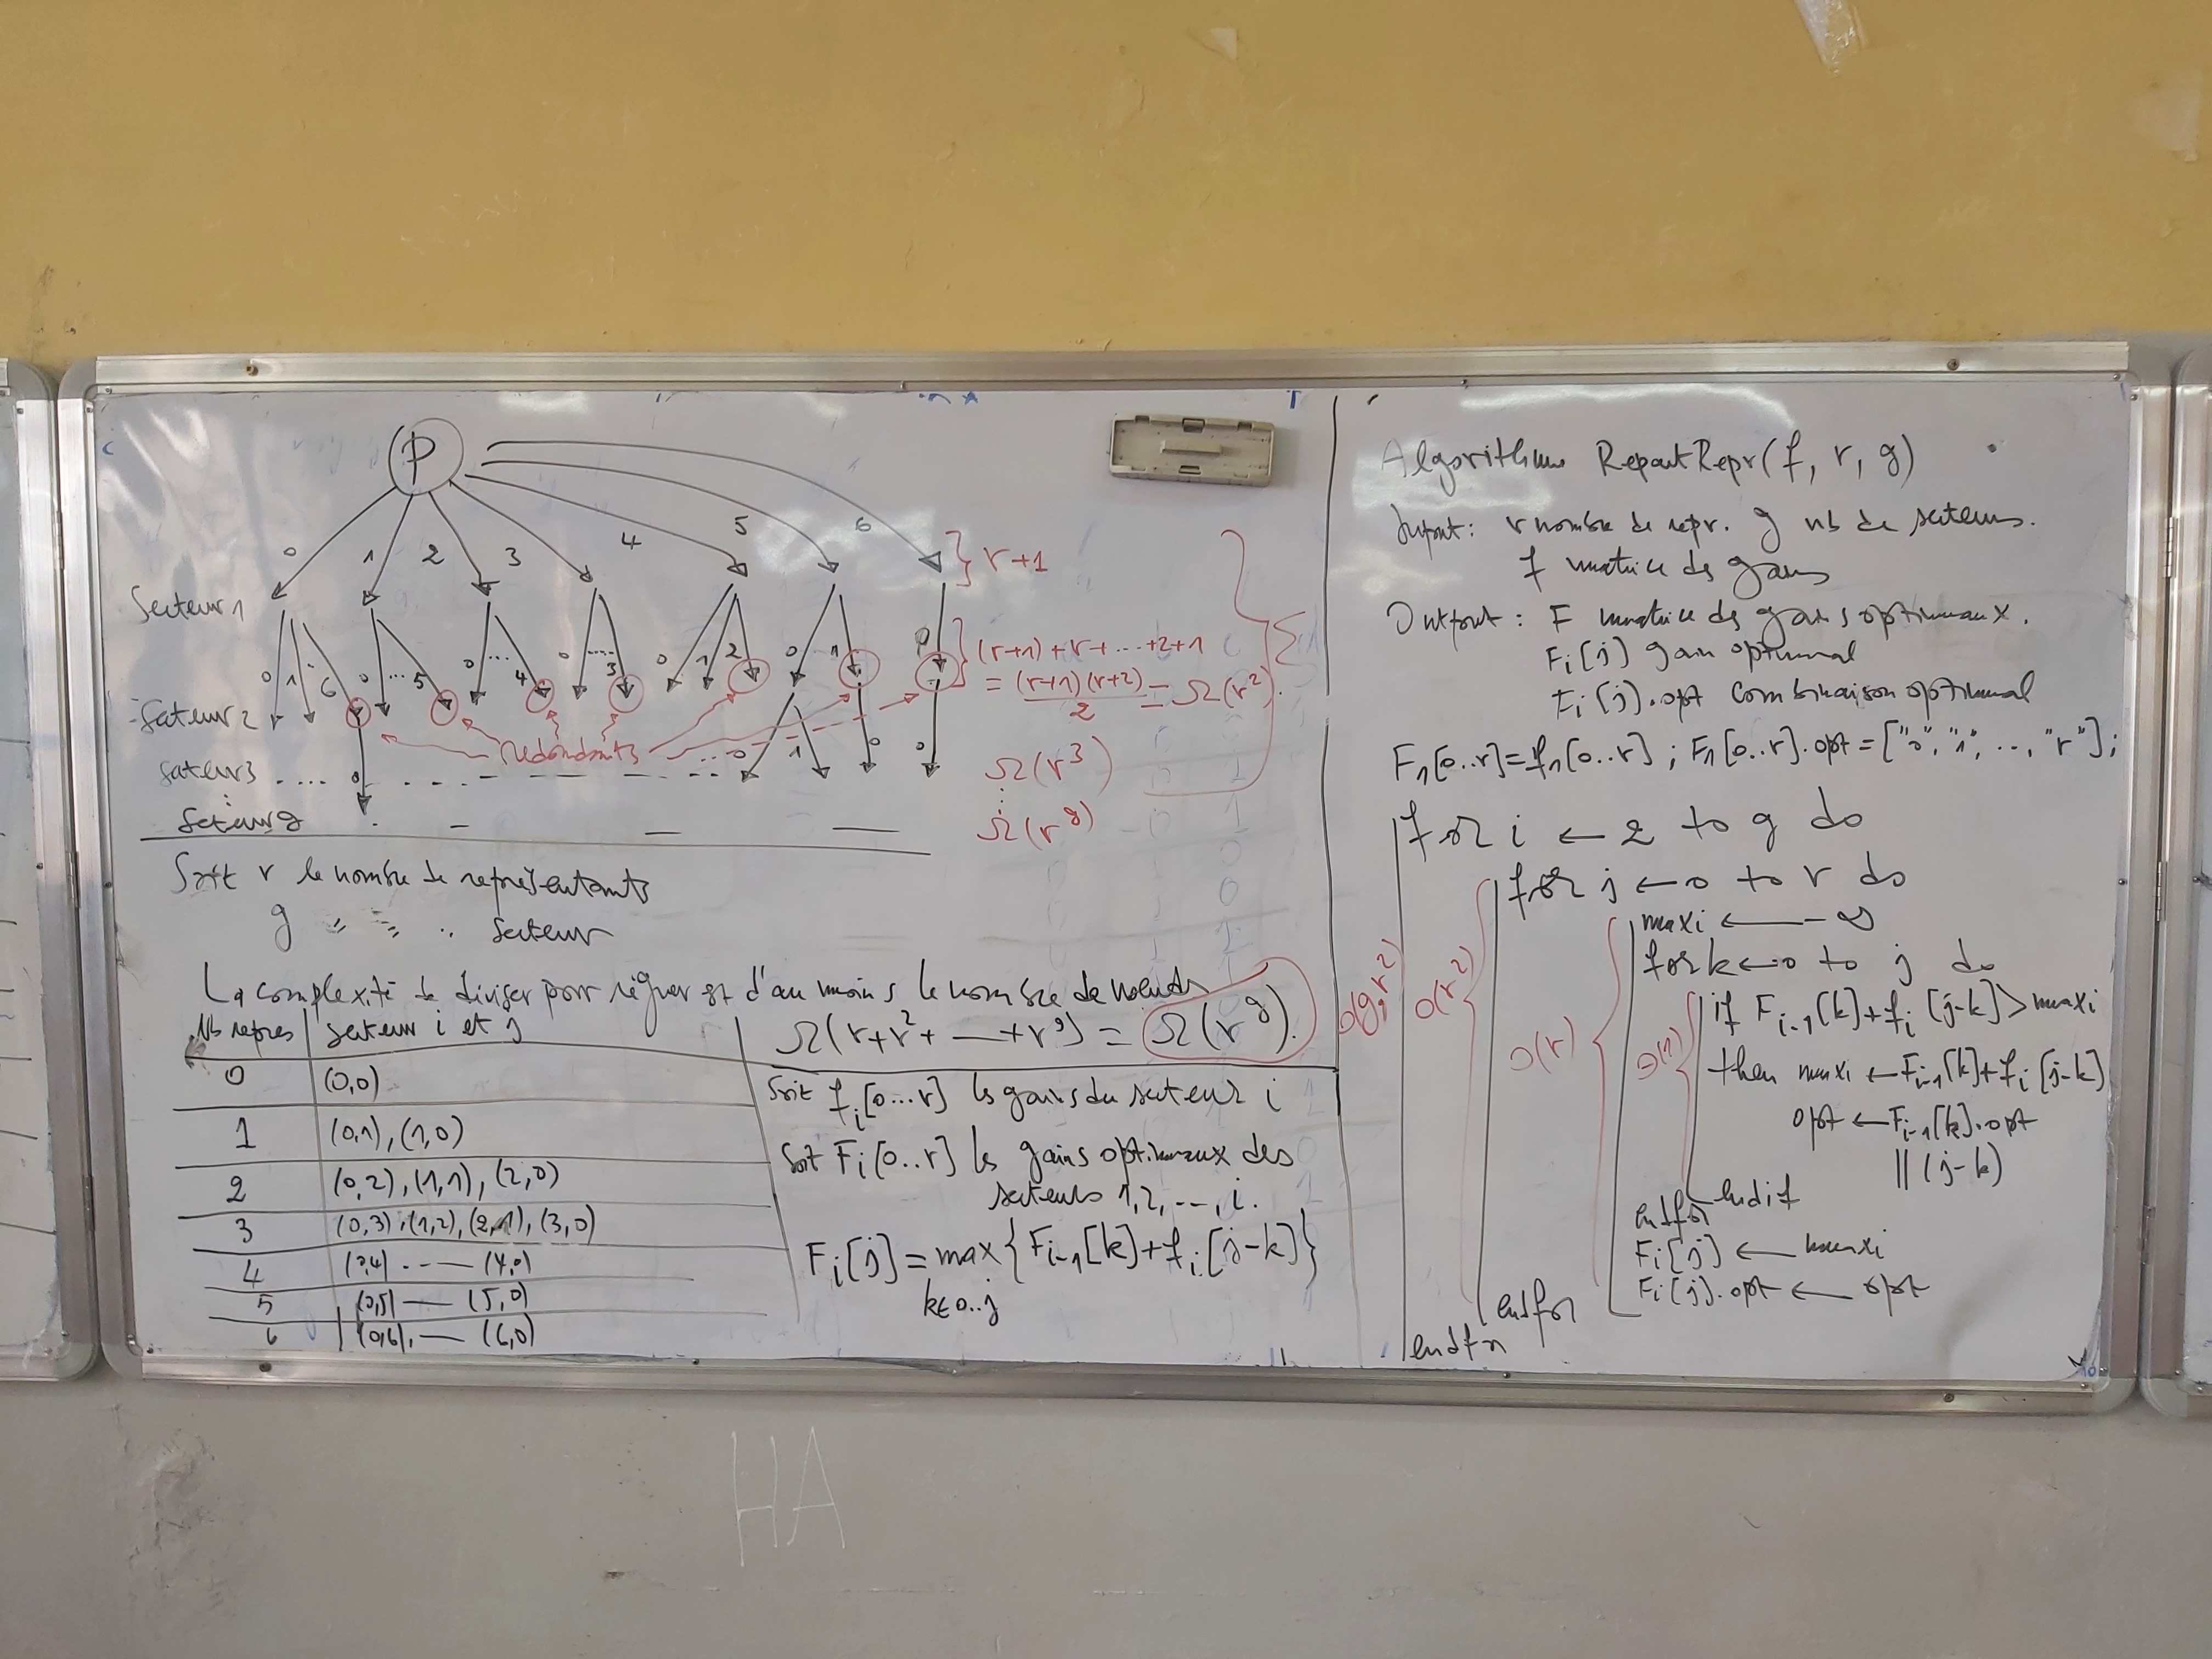 P
0 1 2 3 4 5 6
} r+1
Secteur 1
0 1 .. 6 0 ... 5 0 ... 4 0 .... 3 0 1 2 0 1 0
} (r+1) + r + ... + 2 + 1
= (r+1)(r+2)/2 = Ω(r²).
Secteur 2
redondants
secteur 3 .... 0 ... 0 1 0 0
Ω(r³)
⋮
secteur g
Ω(r^g)
Soit r le nombre de représentants
g " " " secteur
La complexité de diviser pour régner est d'au moins le nombre de noeuds
Ω(r+r²+ — +r^g) = Ω(r^g).
Nb repres | secteur i et j
0 | (0,0)
1 | (0,1), (1,0)
2 | (0,2), (1,1), (2,0)
3 | (0,3), (1,2), (2,1), (3,0)
4 | (0,4) . — (4,0)
5 | (0,5) — (5,0)
6 | (0,6), — (6,0)
Soit f_i[0...r] les gains du secteur i
Soit F_i[0..r] les gains optimaux des
secteurs 1,2, ---, i.
F_i[j] = max {F_i-1[k] + f_i[j-k]}
k∈0..j
Algorithme RepartRepr(f, r, g)
Input: r nombre de repr. g nb de secteurs.
f matrice des gains
Output : F matrice des gains optimaux.
F_i[j] gain optimal
F_i[j].opt combinaison optimal
F_1[0..r]=f_1[0..r] ; F_1[0..r].opt = ["0", "1", ..., "r"];
for i ← 2 to g do
for j ← 0 to r do
maxi ← -∞
for k ← 0 to j do
if F_i-1[k]+f_i[j-k] > maxi
then maxi ← F_i-1[k]+f_i[j-k]
opt ← F_i-1[k].opt
|| (j-k)
endif
endfor
F_i[j] ← maxi
F_i[j].opt ← opt
endfor
endfor
O(g r²)
O(r²)
O(r)
O(1)
HA